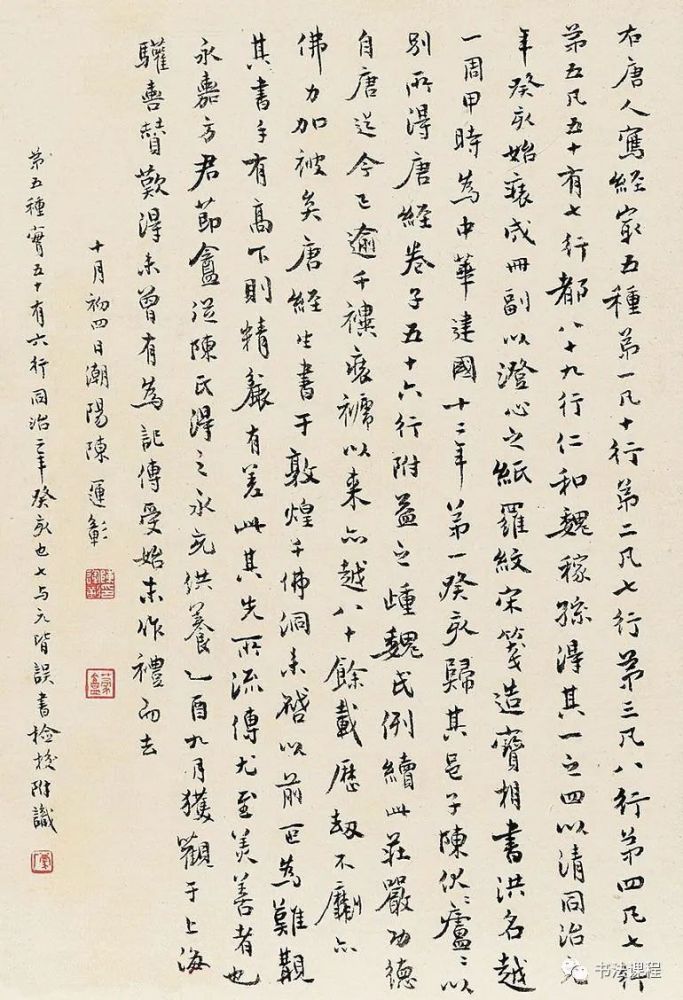 右唐人寫經寂五種第一凡十行第二凡七行第三凡八行第四凡七行
第五凡五十有七行都八十九行仁和魏稼孫得其一之四以清同治元
年癸亥始裱成冊副以澄心之紙羅紋宋箋造寶相書洪名越
一周甲時為中華建國十二年第一癸亥歸其邑子陳伏伏廬廬以
別所得唐經卷子五十六行附益之踵魏氏例續此莊嚴功德
自唐迄今已逾千禩裱褫以來亦越八十餘載歷劫不劘亦
佛力加被矣唐經生書于敦煌千佛洞未啓以前叵為難覯
其書手有高下則精麤有差此其先所流傳尤至美善者也
永嘉方君節盦從陳氏得之永充供養乙酉九月獲觀于上海
驩喜贊歎得未曾有為記傳受始末作禮而去
十月初四日潮陽陳運彰
第五種實五十有六行同治二年癸亥也七与元皆誤書檢校附識
书法课程